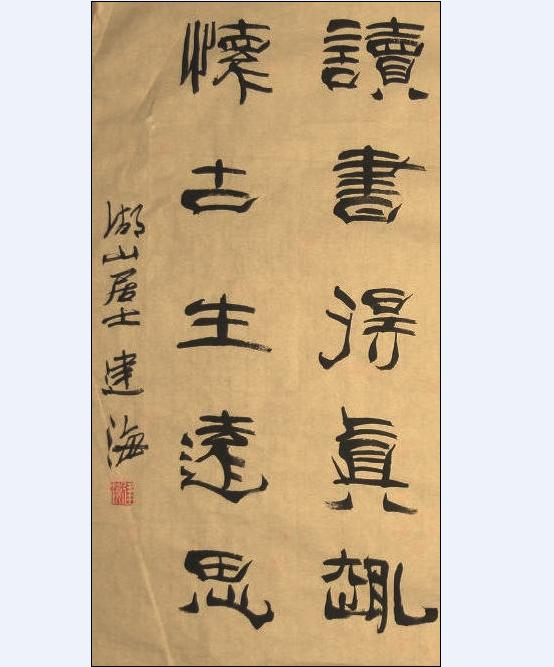 讀書得眞趣
懷古生遠思
湖山居士建海